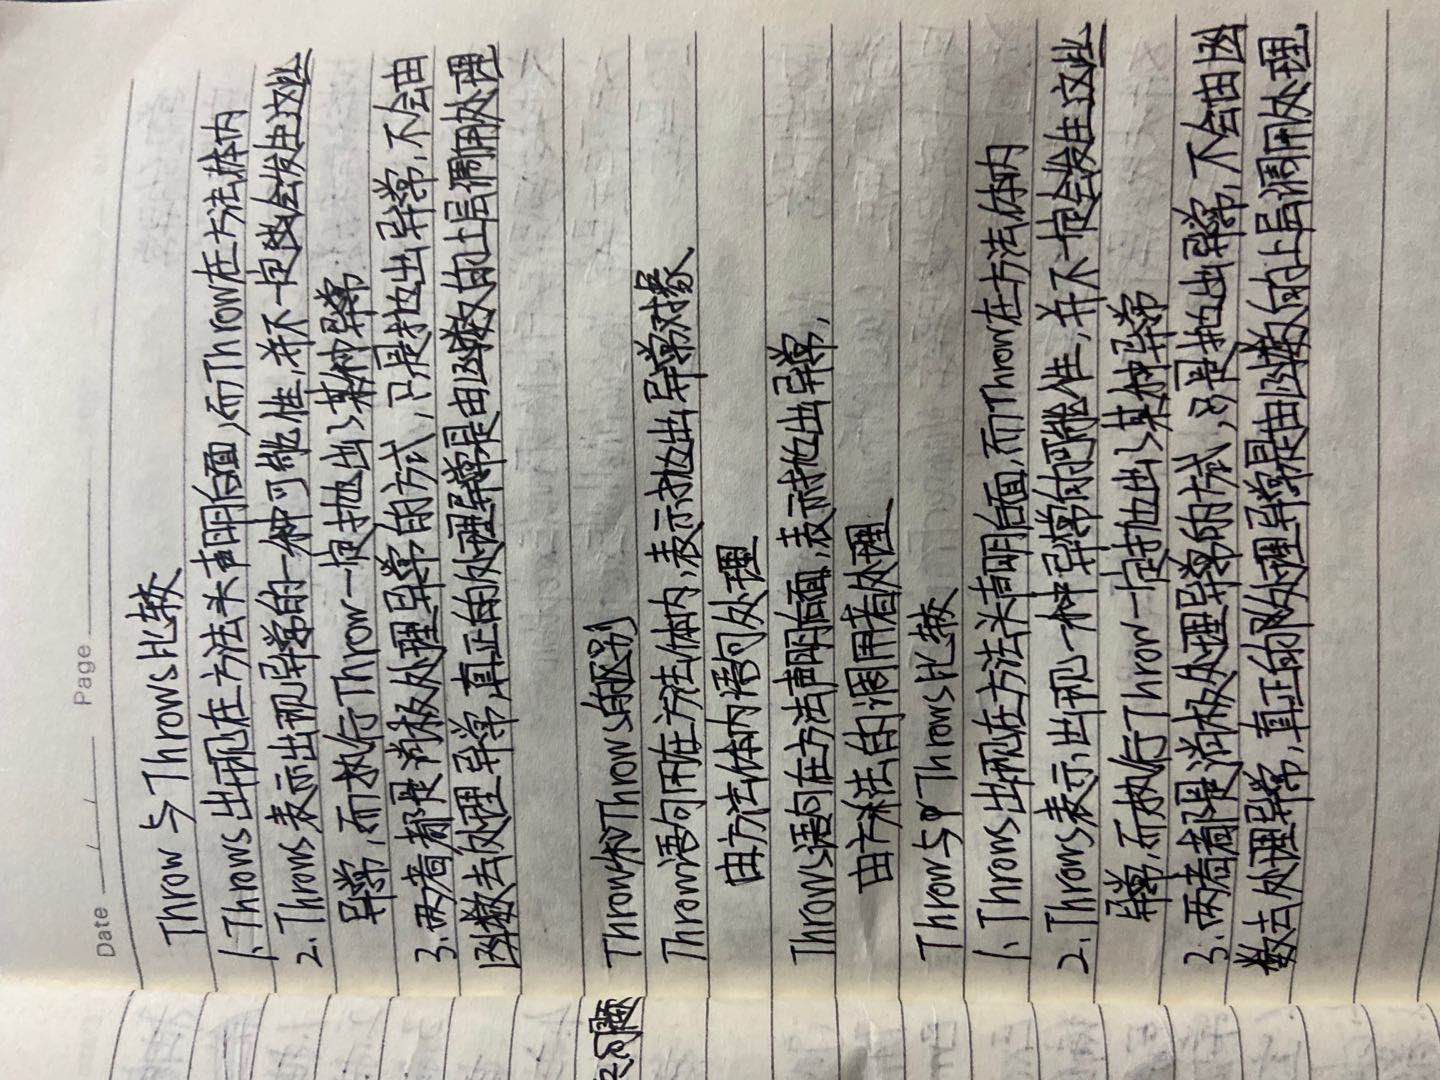 Date / / Page
Throw与Throws比较
1.Throws出现在方法头声明后面,而Throw在方法体内
2.Throws表示出现异常的一种可能性,并不一定会发生这些
异常,而执行Throw一定抛出了某种异常
3.两者都是消极处理异常的方式,只是抛出异常,不会由
函数去处理异常,真正的处理异常是由函数的上层调用处理
问题
Throw和Throws的区别
Throw语句用在方法体内,表示抛出异常对象
由方法体内语句处理
Throws语句在方法声明后面,表示抛出异常,
由方法的调用者处理
Throw与Throws比较
1.Throws出现在方法头声明后面,而Throw在方法体内
2.Throws表示出现一种异常的可能性,并不一定会发生这些
异常,而执行Throw一定抛出了某种异常
3.两者都是消极处理异常的方式,只是抛出异常,不会由函
数去处理异常,真正的处理异常是由函数的上层调用处理.